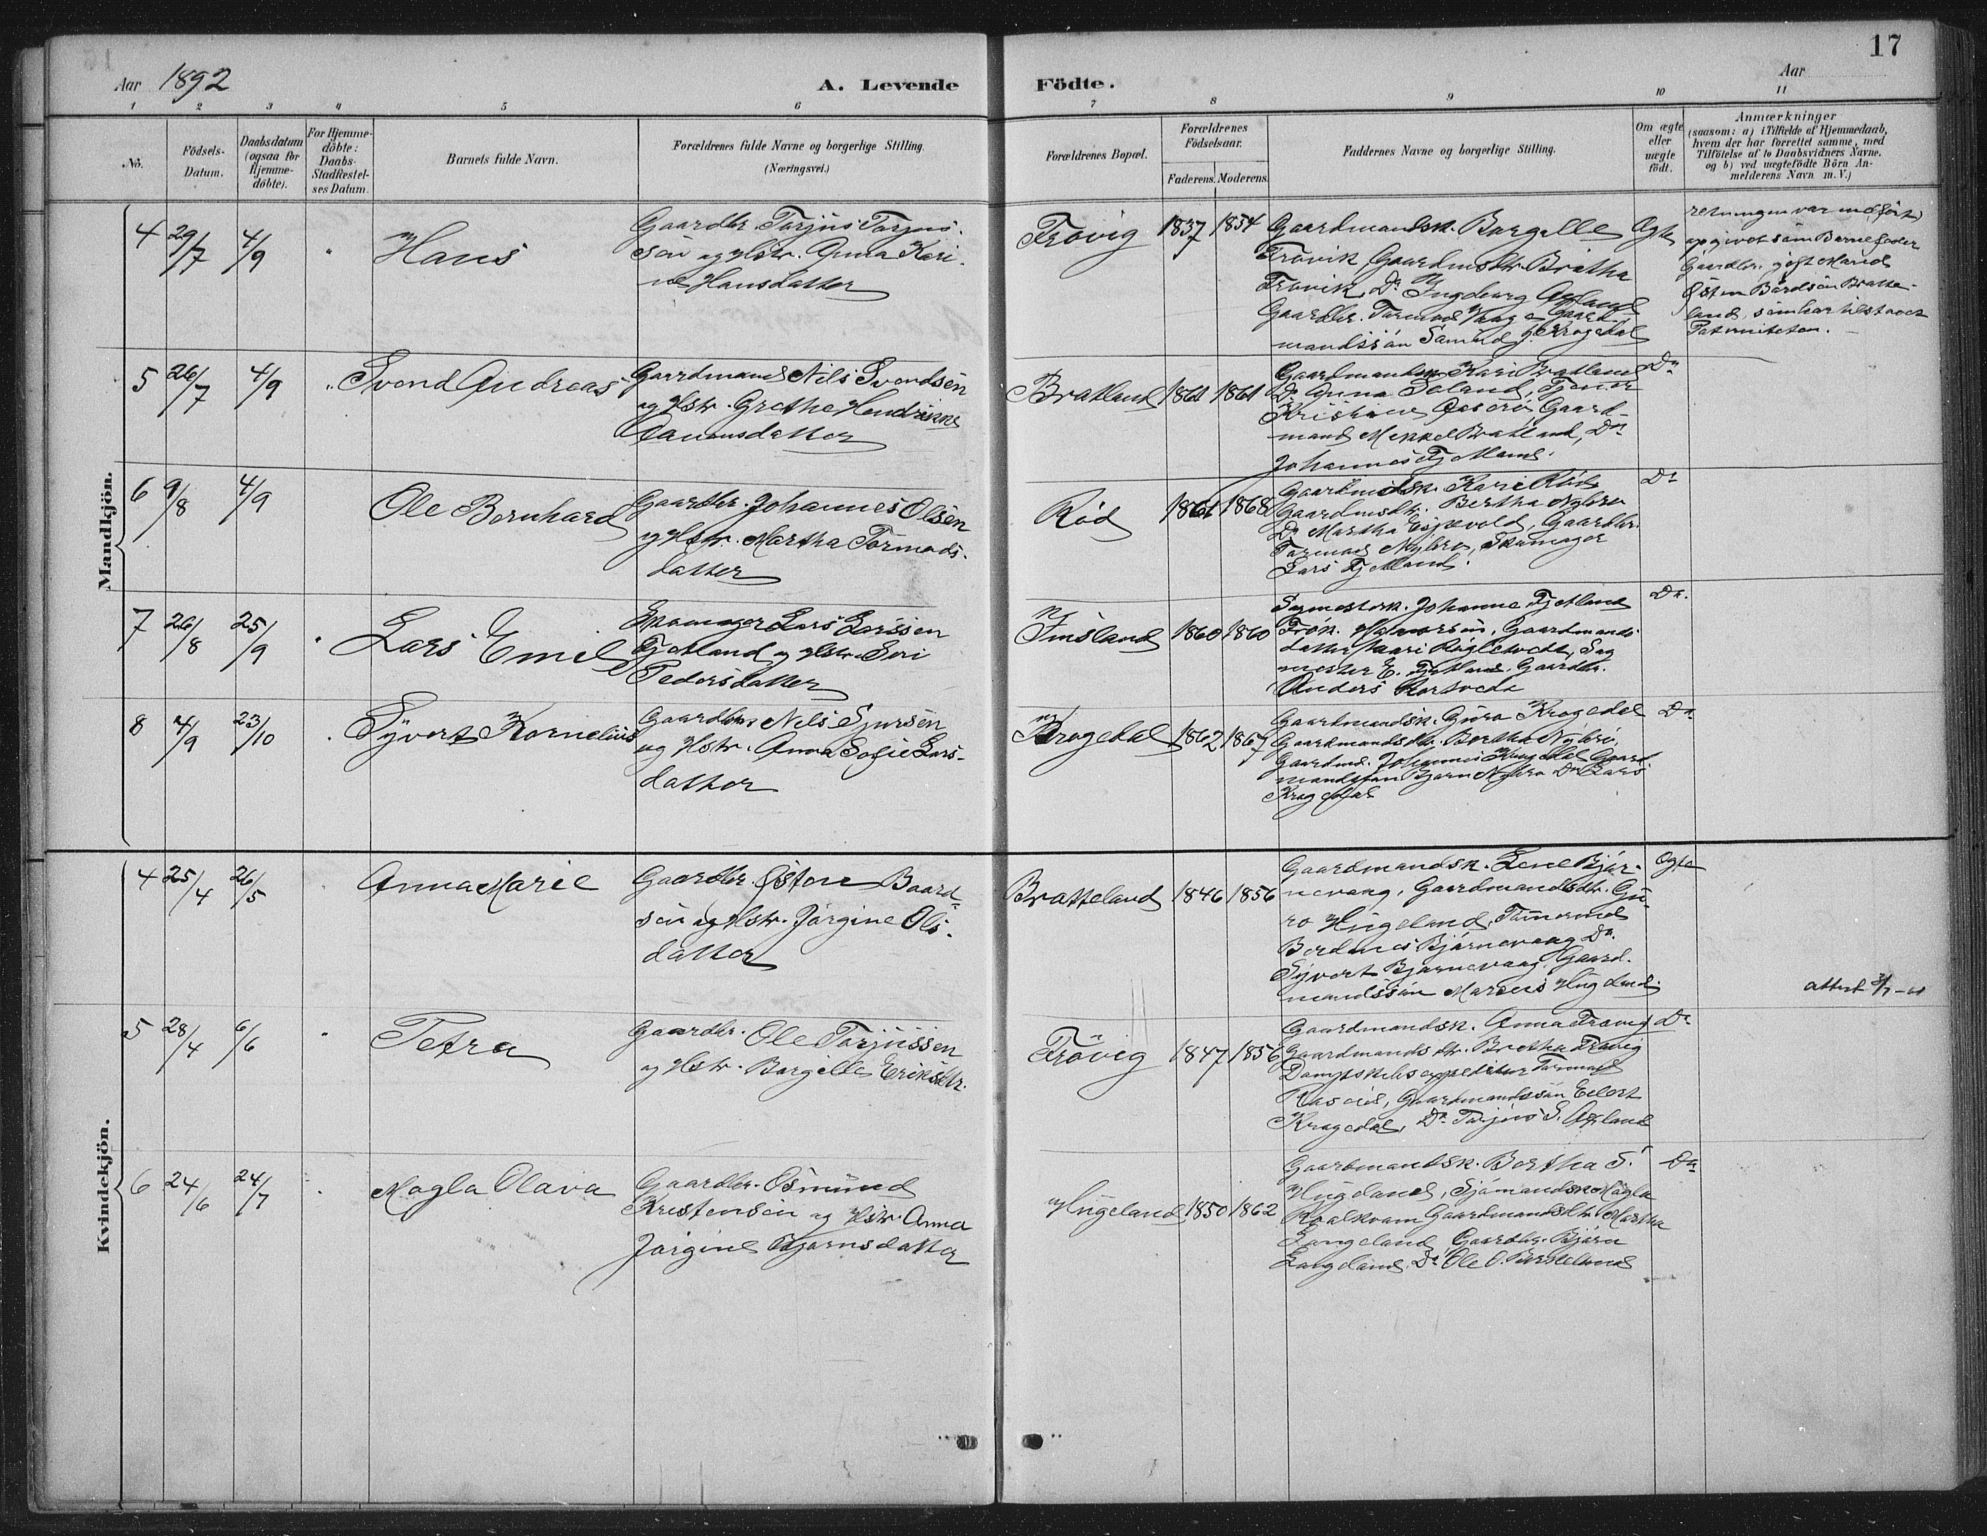 Aar 1892
A. Levende
Födte.
Aar
17
1 2 3 4 5 6 7 8 9 10 11
No.
Födsels-
Datum.
Daabsdatum
(ogsaa for
Hjemme-
döbte).
For Hjemme-
döbte:
Daabs-
Stadfestel-
ses Datum.
Barnets fulde Navn.
Forældrenes fulde Navne og borgerlige Stilling.
(Næringsvei.)
Forældrenes Bopæl.
Forældrenes
Födselsaar.
Faderens. Moderens.
Faddernes Navne og borgerlige Stilling.
Om ægte
eller
uægte
födt.
Anmærkninger
(saasom: a) i Tilfælde af Hjemmedaab,
hvem der har forrettet samme, med
Tilföielse af to Daabsvidners Navne.
og b) ved uægtefödte Börn An-
melderens Navn m. V.)
Mandkjön.
4 29/7 4/9 " Hans
Gaardbr. Torjus Torjus-
sön og Hstr. Anna Kari-
ne Hansdatter
Trövig 1837 1854
Gaardmandsk. Borgille
Trövik Gaardmdtr. Britha
Trövik, Do Ingeborg Opland
Gaardbr. Tormod Haage, Gaard
mandssön Samuel J. Krogedal
Ægte
retningen var indfört)
opgivet som Barnefader
Gaardbr. gift Mand
Østen Bårdsön Bratte-
land, som har tilstaaet
Paterniteten.
5 26/7 4/9 " Svend Andreas
Gaardmand Nils Svendsen
og Hstr. Grethe Hendrikke
Danensdatter
Bratland 1861 1861
Gaardmandsk. Kari Bratland
Do Anna Seland, Tjener
Kristine Aaserö Gaard-
mand Mekkel Bratland, Do
Johannes Fjetland.
Do
6 9/8 4/9 Ole Bernhard
Gaardbr. Johannes Olsen
og Hstr. Martha Tormods-
datter
Röd 1861 1868
Gaardmdsk. Kari Röd
Gaardmdtr. Bertha Nybru
Do Martha Espevold, Gaardbr.
Tormod Nybro, Skomager
Lars Fjetland.
Do
7 26/8 25/9 " Lars Emil
Skomager Lars Larssen
Fjetland og Hstr. Siri
Pedersdatter
Finsland 1860 1860
Sagmesterk. Johanne Fjetland
Frök. Halvorsen, Gaardmands-
datter Maari Röglstvedt, Sag
mester E. Fjetland Gaardbr.
Anders Rostvedt
Do.
8 4/9 23/10 " Syvert Kornelius
Gaardbr. Nils Sjursen
og Hstr. Anna Sofie Lars-
datter
Krogedal 1862 1867
Gaardmandsk. Guro Krogedal
Gaardmandsdtr. Bertha Nybrö,
Gaardmd. Johannes Krogedal Gaard
mandssön Bjarn Nybro Do Lars
Krogedal
Do.
Kvindekjön.
4 25/4 26/5 " Anna Marie
Gaardbr. Østen Baard-
sön og Hstr. Jörgine Ols-
datter
Bratteland 1846 1856
Gaardmandsk. Lene Björ-
nevaag, Gaardmandsdtr. Gu-
ro Hugeland, Tömermd
Berdines Björnevaag Do.
Syvert Bjørnevaag, Gaard-
mandssön Marcus Hugeland.
Ægte
attest 3/7-41
5 28/4 6/6 " Petra
Gaardbr. Ole Torjussen
og Hstr. Borgille Eriksdtr.
Trövig 1847 1856
Gaardmandsk. Anna Trövig
Gaardmandsdtr. Bretha Trövig
Dampskibsexpeditör Tormod
Rasvåg, Gaardmandssön Eilert
Krogedal, Do Torjus S. Opland
Do
6 24/6 24/7 " Magla Olava
Gaardbr. Osmund
Kristensen og Hstr. Anna
Jörgine Bjornsdatter
Hugeland 1850 1862
Gaardmandsk. Bertha S.
Hugeland, Sjömandsk. Magla
Roalkvam Gaardmandsdtr. Martha
Langeland Gaardbr. Björn
Langeland. Do Ole O. Birkeland
Do.